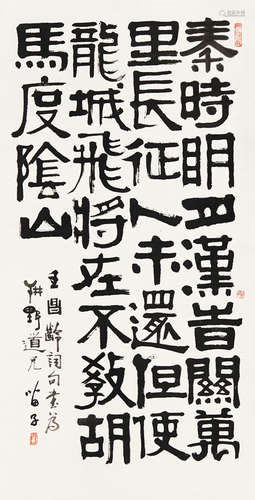 秦時明月漢旹關萬
里長征人未還但使
龍城飛將在不教胡
馬度陰山
王昌齡詞句書為
耕野道兄